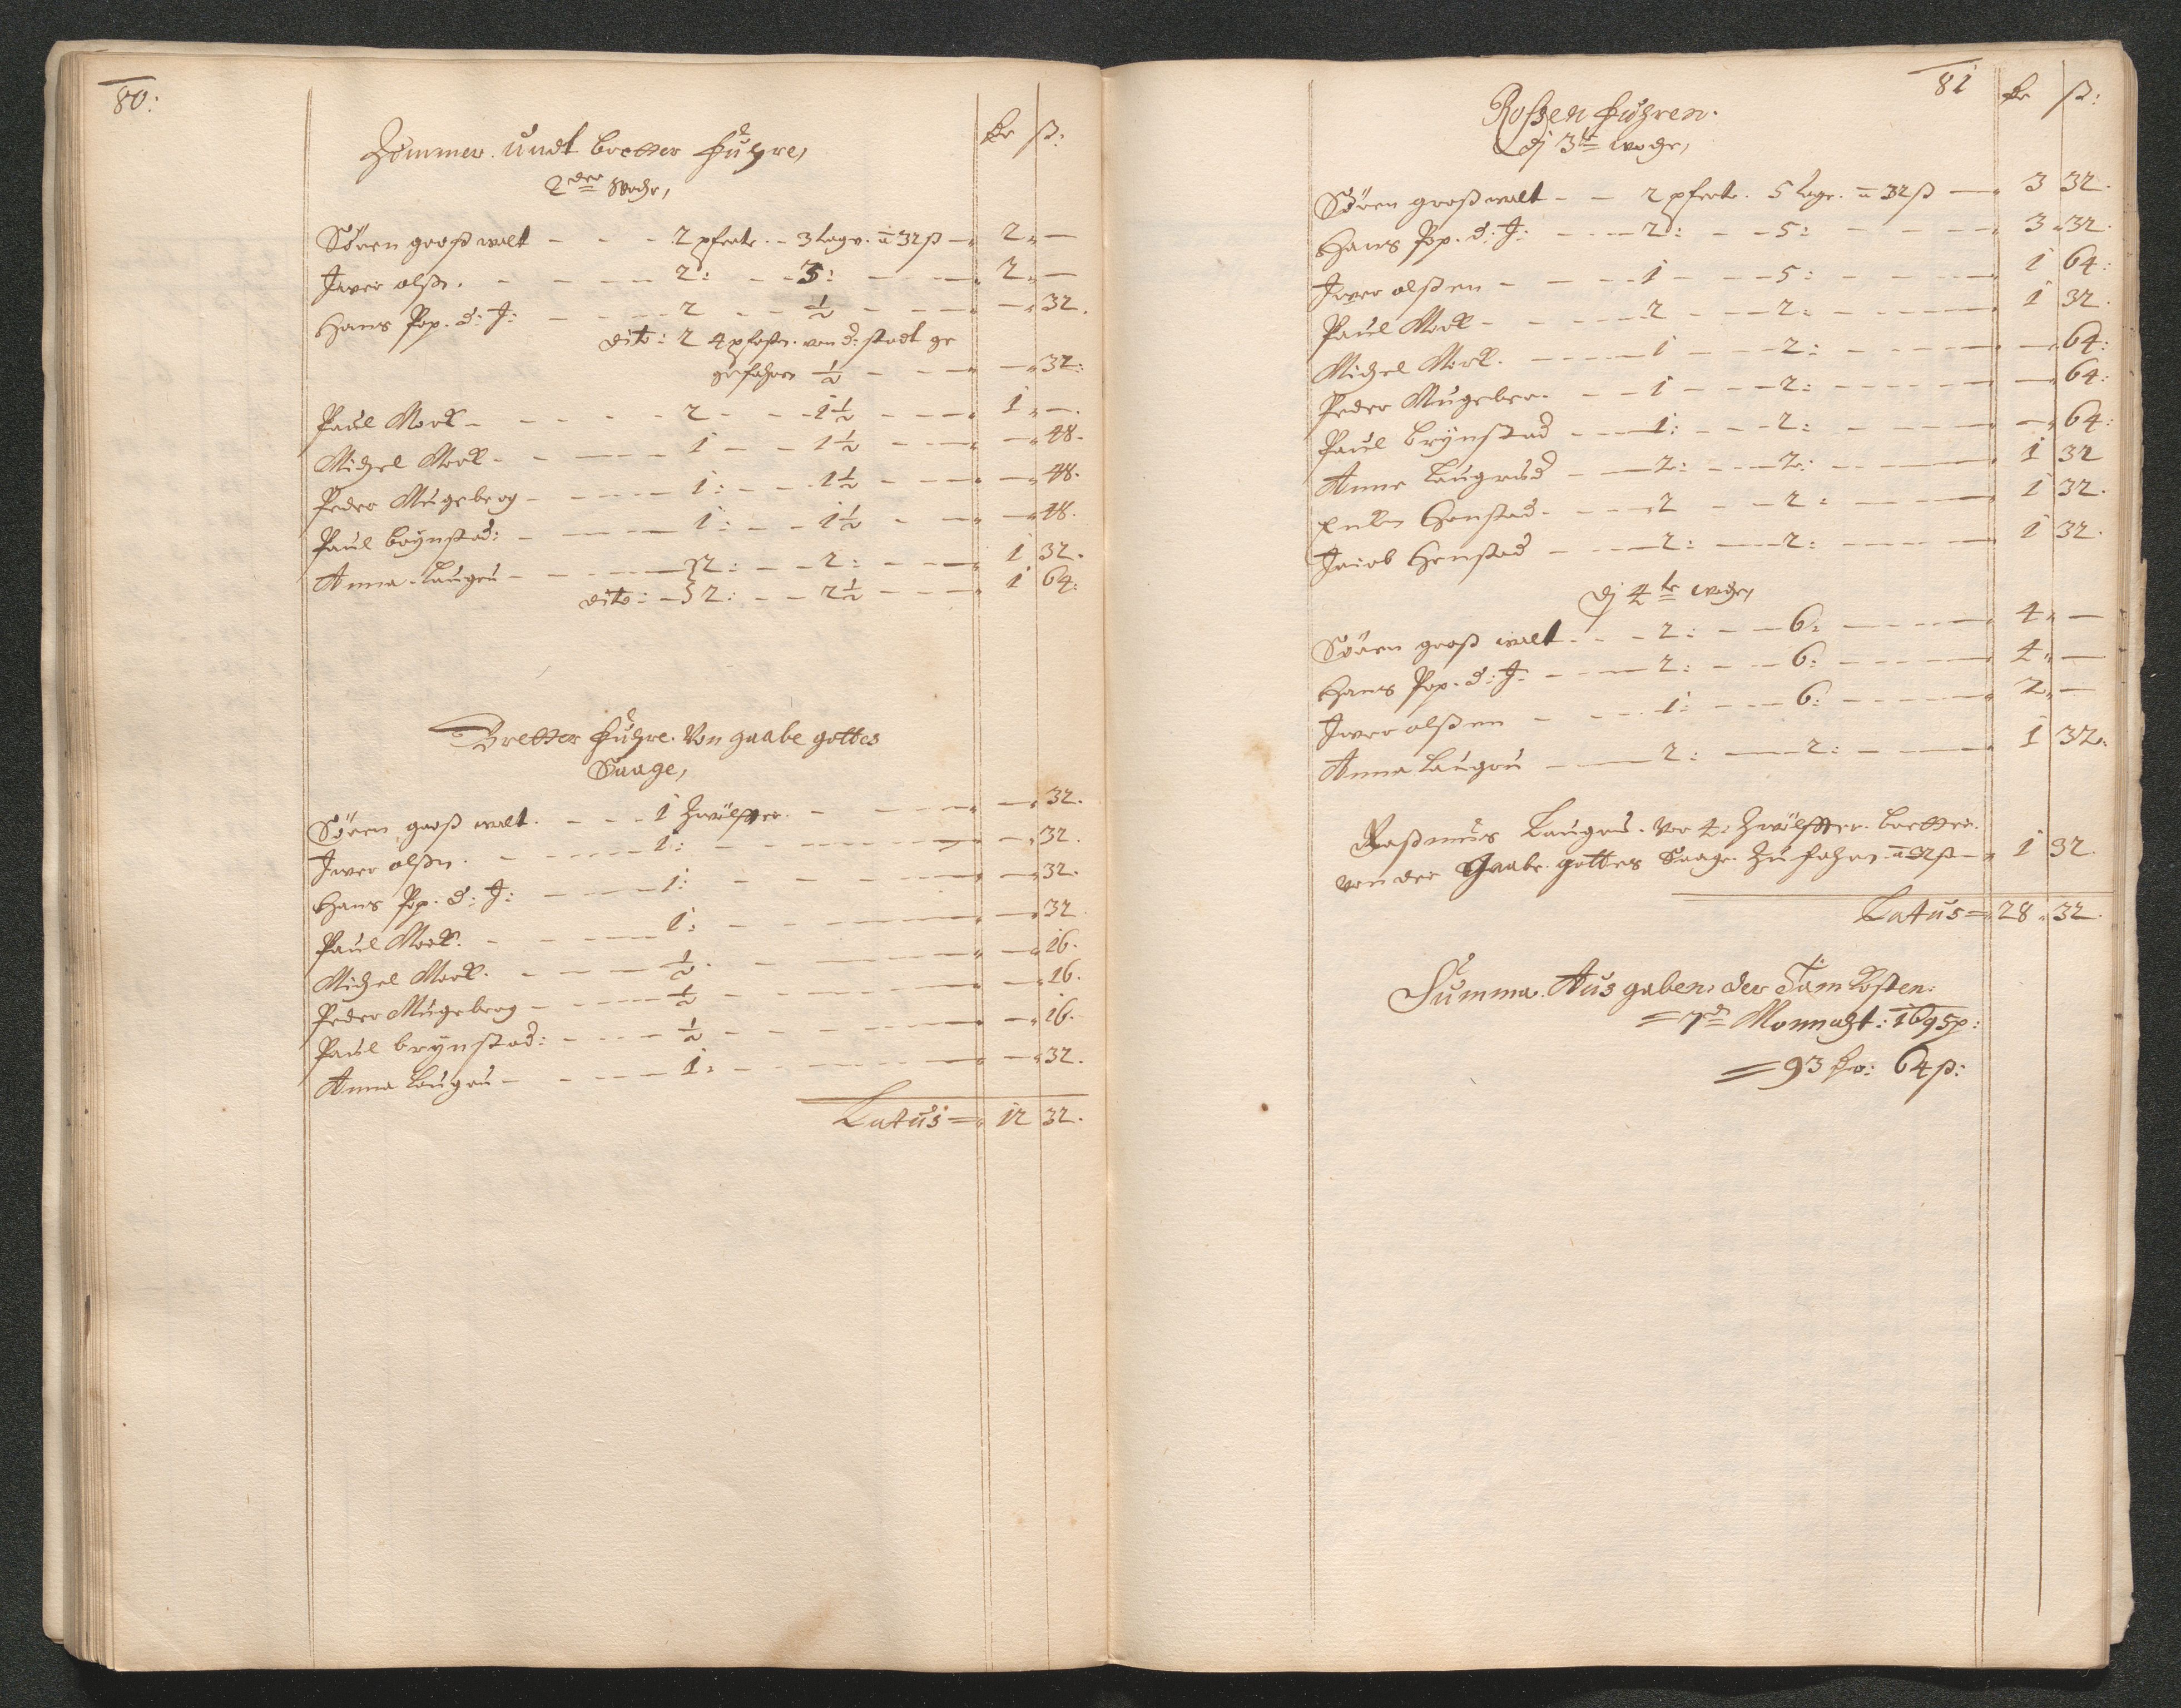 80:
Zimmer. undt bretter fuhre,
Rr ß:
2der Woche,
Sören groß walt - - - 2 pferte. - 3 tage. a 32 ß — 2 " —
Iwer olßn. - - - - 2: - - 3: - - - 2 " —
Hans Pop. d: J: - - - 2 - - ½ - - - — " 32.
dito: 2 4 pfosten. von d: stadt ge
gefahren ½ - - - — " 32:
Paul Mork - - - - 2 - - - 1½ - - - 1 " —.
Michel Mork - - - - 1 - - 1½ - - - — " 48.
Peder Mugeberg - - - - 1: - - 1½ - - - — " 48.
Paul brÿnstad: - - - - 1: - - 1½ - - - — " 48.
Anna. Laugru - - - - 2: - - 2: - - - 1 32.
dito: - 2: - - 2½ - - - 1 64:
Bretter fuhre. Von gaabe gottes
Saage,
Sören groß walt. - - - 1 Zwölffter. - - - — " 32.
Iwer olßn. - - - - 1: - - - — " 32.
Hans Pop. d: J: - - - 1: - - - — " 32.
Paul Mork. - - - - 1: - - - — " 32
Michel Mork. - - - ½. - - - — " 16.
Peder Mugeberg - - - ½ - - - — " 16.
Paul brÿnstad: - - - ½ - - - — " 16.
Anna Laugru - - - - 1: - - - — " 32.
Latus = " 12 32.
81
Roßen fuhren.
Rr ß:
Dj 3te woche,
Sören groß walt - - 2 pferte. 5 tage. a 32 ß — " 3 32.
Hans Pop. d: J: - - - 2: - - 5: - - - 3 " 32.
Iwer olßen - - - - 1 - - - 5: - - - 1 64:
Paul Mork - - - - 2 - - - 2: - - - 1 32.
Michel Mork. - - - - 1 - - - 2: - - - — " 64:
Peder Mugeber. - - 1 - - - 2: - - - — " 64:
Paul brÿnstad - - - 1: - - - 2: - - - — " 64:
Anne Laugrud - - - 2: - - - 2: - - - 1 32
Honstad. - - - 2 - - 2: - - - 1 32.
Jacob Honstad - - - 2: - - - 2: - - - 1 32.
Dj 4te woche,
Sören groß walt - - - 2: - - - 6: - - - 4 " —
Hans Pop. d: J: - - - 2: - - - 6: - - - 4 " —
Iwer olßen - - - 1: - - - 6: - - - 2 " —
Anna Laugru - - - 2: - - - 2: - - - 1 32.
Raßmus Laugru. vor 4: Zwölffter. bretter.
von der Gaabe. gottes Saage. zu fahren. a 32 ß — " 1 32.
Latus = " 28 " 32.
Summa. Ausgaben. der Dam Kosten:
= 7d Monnaht: 1695p:
= 93 Rr: 64 ß: